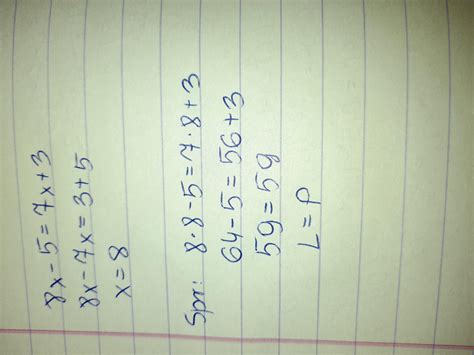 8x-5=7x+3
8x-7x=3+5
x=8
Spr: 8·8-5=7·8+3
64-5=56+3
59=59
L=P